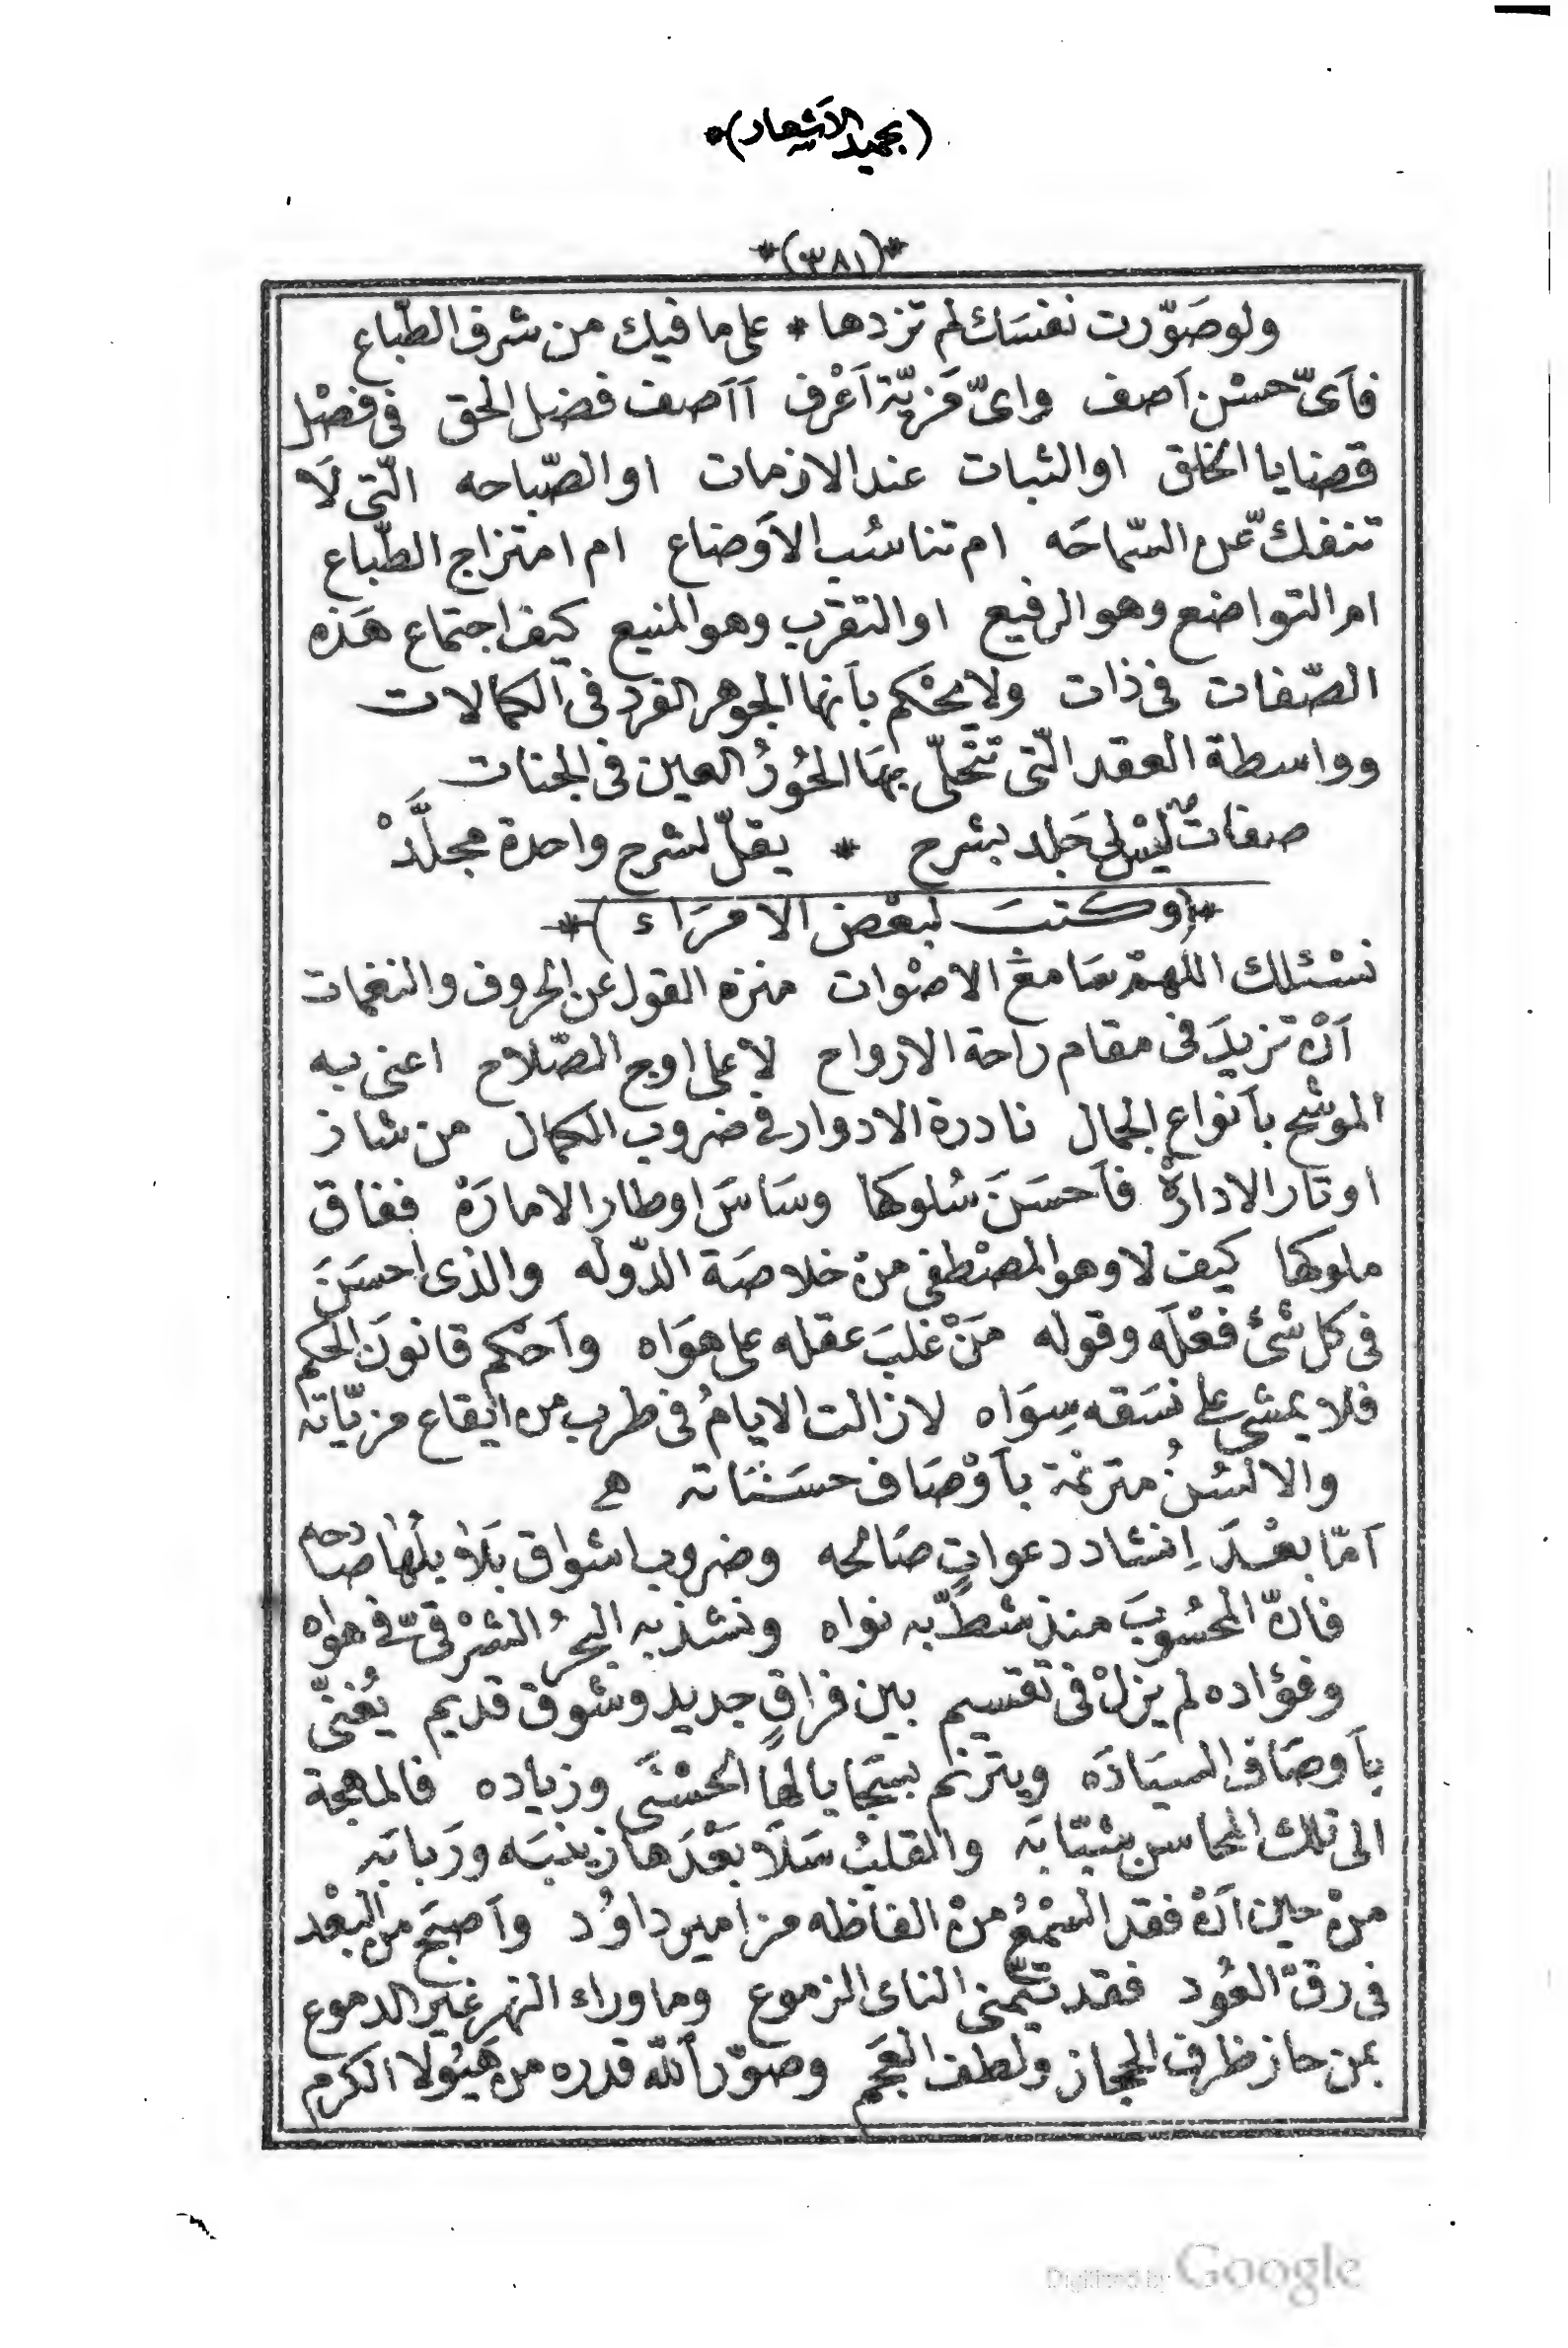 (بحميد الاشعار)*
*(٣٨١)*
ولو صَوّرت نفسَك لم تزدها * على ما فيك من شرف الطّباع
فأىّ حسْن اَصف واىّ مَزيّة اَعْرف اَاَصف فضل الحق فى فصْل
قضايا الخلق او الثبات عند الازمات او الصّباحه الّتى لاَ
تنفكّ عن السّماحَه ام تناسُب الاَوضاع ام امتزاج الطّباع
ام التواضع وهو الرفيع او التقرّب وهو المنيع كيف اجتماع هَذه
الصّفات فى ذات ولا يحْكم بأنها الجوهر الفرد فى الكمالات
وواسطة العقد الّتى تتحْلّى بهَا الحُورُ العين فى الجنات
صفاتٌ ليْس لى جَلد بشرح * يقلّ لشرح واحدة مجلَّدْ
*(وكتبت لبعْض الامرَاء)*
نسْئلك اللهمّ سَامعْ الاصْوات منزه القول عن الحروف والنغمات
اَنْ تزيدَ فى مقام راحة الارواح لاعلى اوج الصّلاح اعنى به
الموشح بأنواع الجمال نادرة الادوار فى ضروب الكمال من شاز
اوتار الادارةْ فأحسَنَ سُلوكها وسَاسَ اوطار الامارَةْ ففاق
ملوكها كيف لا وهو المصْطفى منْ خلاصَة الدّوله والذى احسَنَ
فى كل شئ فعْلَه وقوله مَنْ غلبَ عقله على هوَاه وأحْكم قانونَ الحكم
فلا يمشى على نسَقه سِوَاه لازالت الايامُ فى طرب من ايقاع مزيّاته
والالسُنُ مترنمة بأوْصَاف حسَناته هـ
اَمّا بعْدَ اِنشاد دعواتٍ صَالحه وضروب اشواق بَلاَبلُهَا صَادحه
فانّ المحْسُوبَ منذ شطّ به نواه ونشذ به البحرُ الشرْقىّ فى هواه
وفؤاده لم يزلْ فى تقسيم بين فراقٍ جديد وشوق قديم يُغنّى
بأوصَاف السيَادَه ويترنم بسَجايا لهَا الحسْنَى وزياده فالمهجة
الى تلك المحاسن شبّابَه والقلبُ سَلاَ بَعْدَها زينبَه ورَبابَه
منْ حين اَنْ فقد السّمْعُ منْ الفاظه مزامير داوُد وأصبحَ من البعْد
فى رقّ العُود فقد تَمنى الناى الزموع وما وراء النهر غير الدموع
بمن حاز ظرف الحجاز ولطف العَجم وصوّر الله قدره من هَيُولا الكرم
Digitized by Google